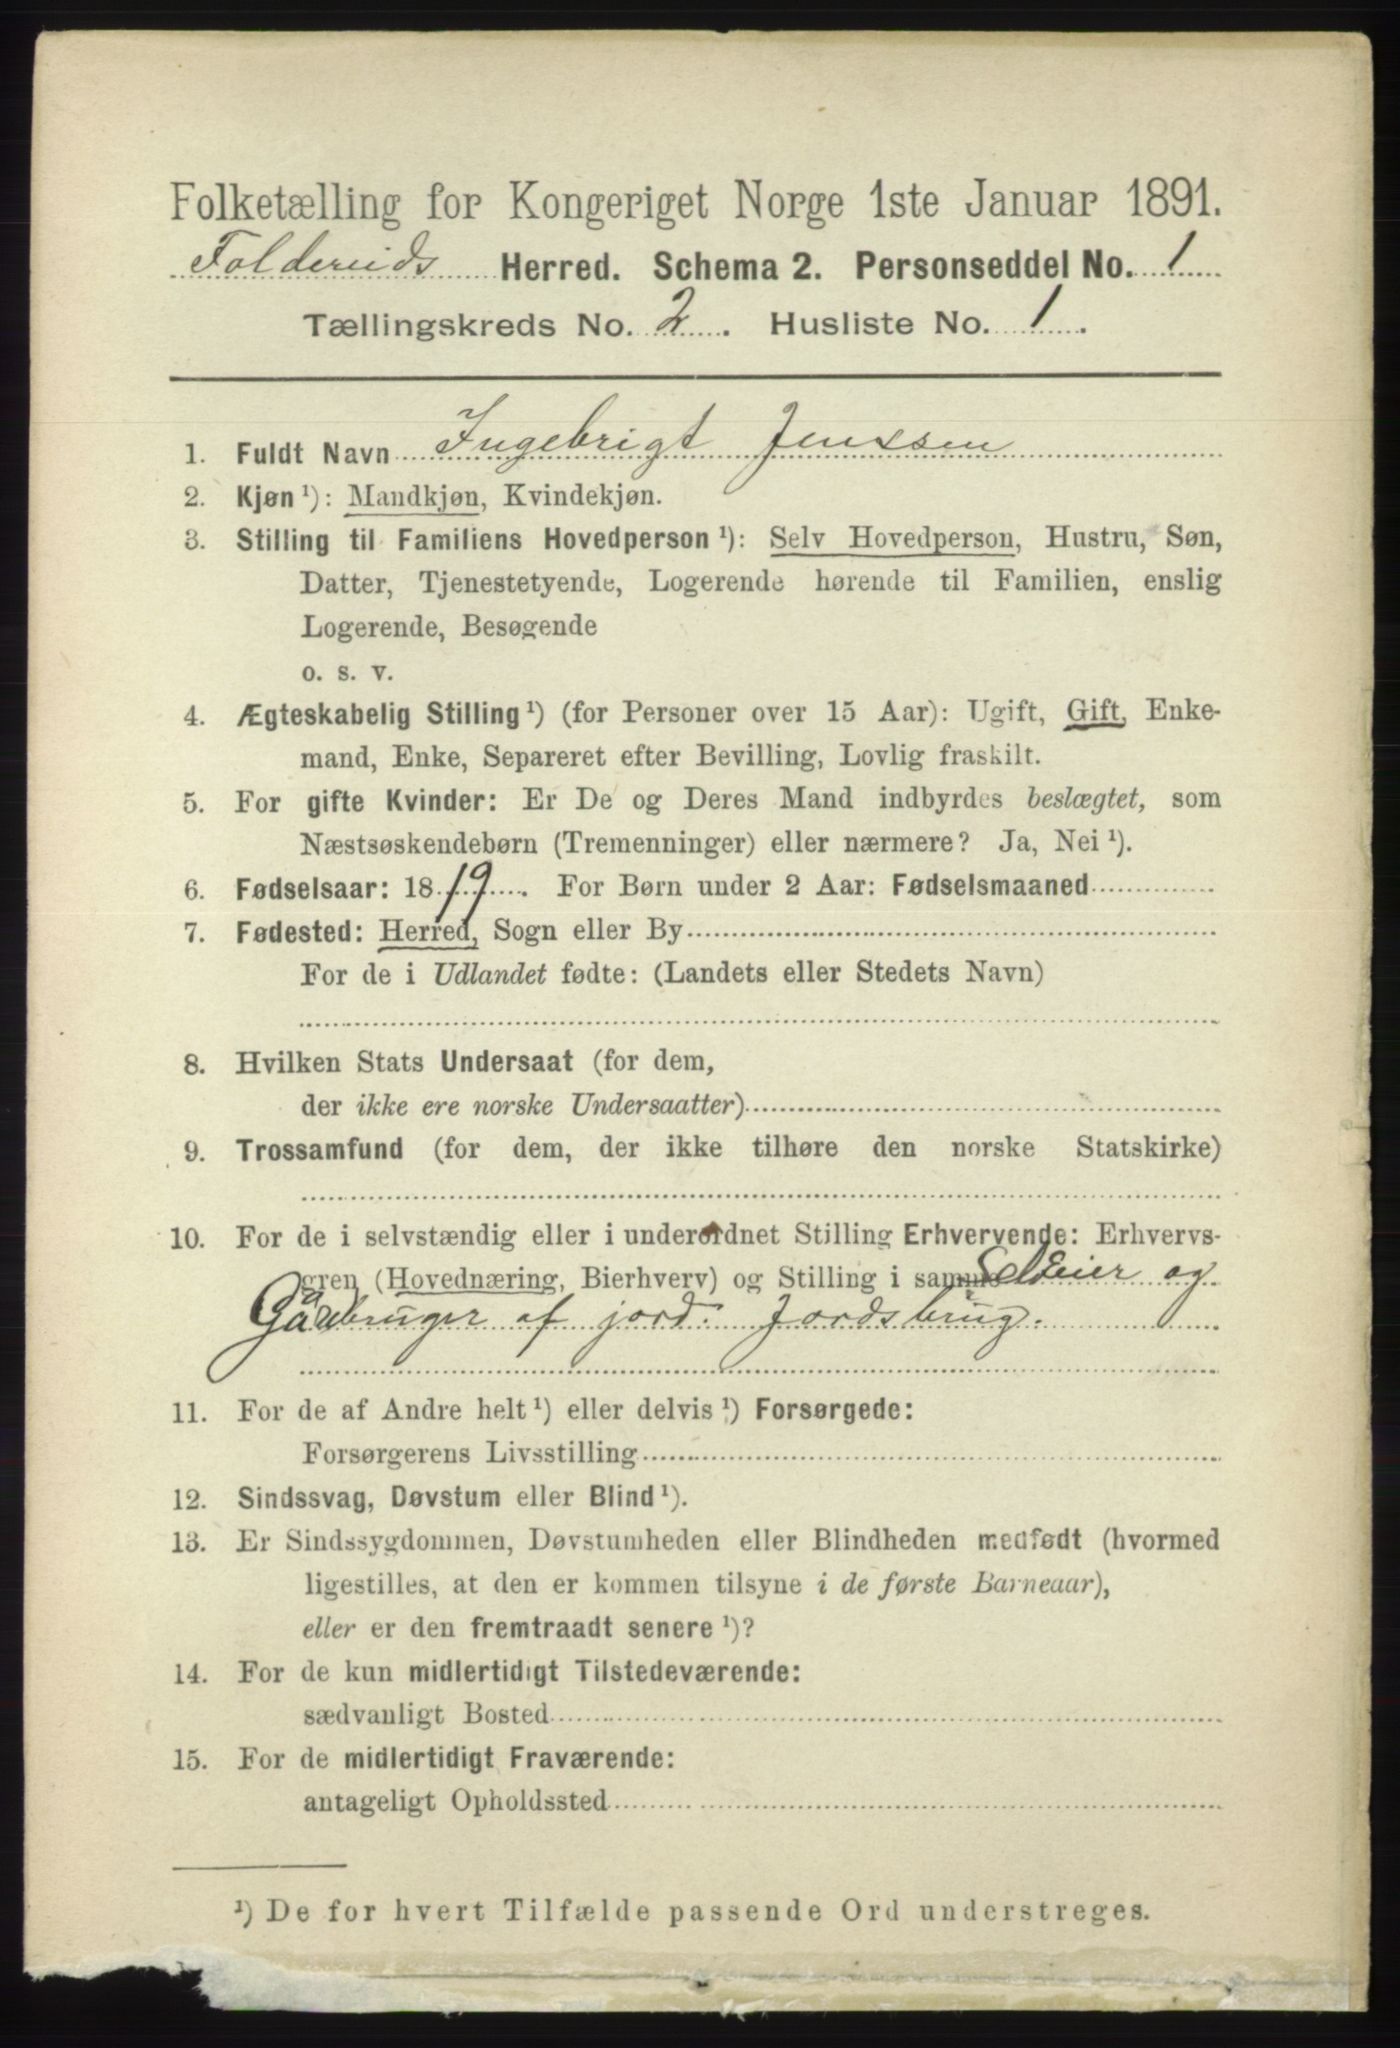 Folketælling for Kongeriget Norge 1ste Januar 1891.
Foldereids Herred. Schema 2. Personseddel No. 1
Tællingskreds No. 2. Husliste No. 1.
1. Fuldt Navn Ingebrigt Jenssen
2. Kjøn ¹): Mandkjøn, Kvindekjøn.
3. Stilling til Familiens Hovedperson ¹): Selv Hovedperson, Hustru, Søn,
Datter, Tjenestetyende, Logerende hørende til Familien, enslig
Logerende, Besøgende
o. s. v.
4. Ægteskabelig Stilling ¹) (for Personer over 15 Aar): Ugift, Gift, Enke-
mand, Enke, Separeret efter Bevilling, Lovlig fraskilt.
5. For gifte Kvinder: Er De og Deres Mand indbyrdes beslægtet, som
Næstsøskendebørn (Tremenninger) eller nærmere? Ja, Nei ¹).
6. Fødselsaar: 1819. For Børn under 2 Aar: Fødselsmaaned
7. Fødested: Herred, Sogn eller By
For de i Udlandet fødte: (Landets eller Stedets Navn)
8. Hvilken Stats Undersaat (for dem,
der ikke ere norske Undersaatter)
9. Trossamfund (for dem, der ikke tilhøre den norske Statskirke)
10. For de i selvstændig eller i underordnet Stilling Erhvervende: Erhvervs-
gren (Hovednæring, Bierhverv) og Stilling i samme Selveier og
Gårdbruger af jord. Jordsbrug.
11. For de af Andre helt ¹) eller delvis ¹) Forsørgede:
Forsørgerens Livsstilling
12. Sindssvag, Døvstum eller Blind ¹).
13. Er Sindssygdommen, Døvstumheden eller Blindheden medfødt (hvormed
ligestilles, at den er kommen tilsyne i de første Barneaar),
eller er den fremtraadt senere ¹)?
14. For de kun midlertidigt Tilstedeværende:
sædvanligt Bosted
15. For de midlertidigt Fraværende:
antageligt Opholdssted
¹) De for hvert Tilfælde passende Ord understreges.